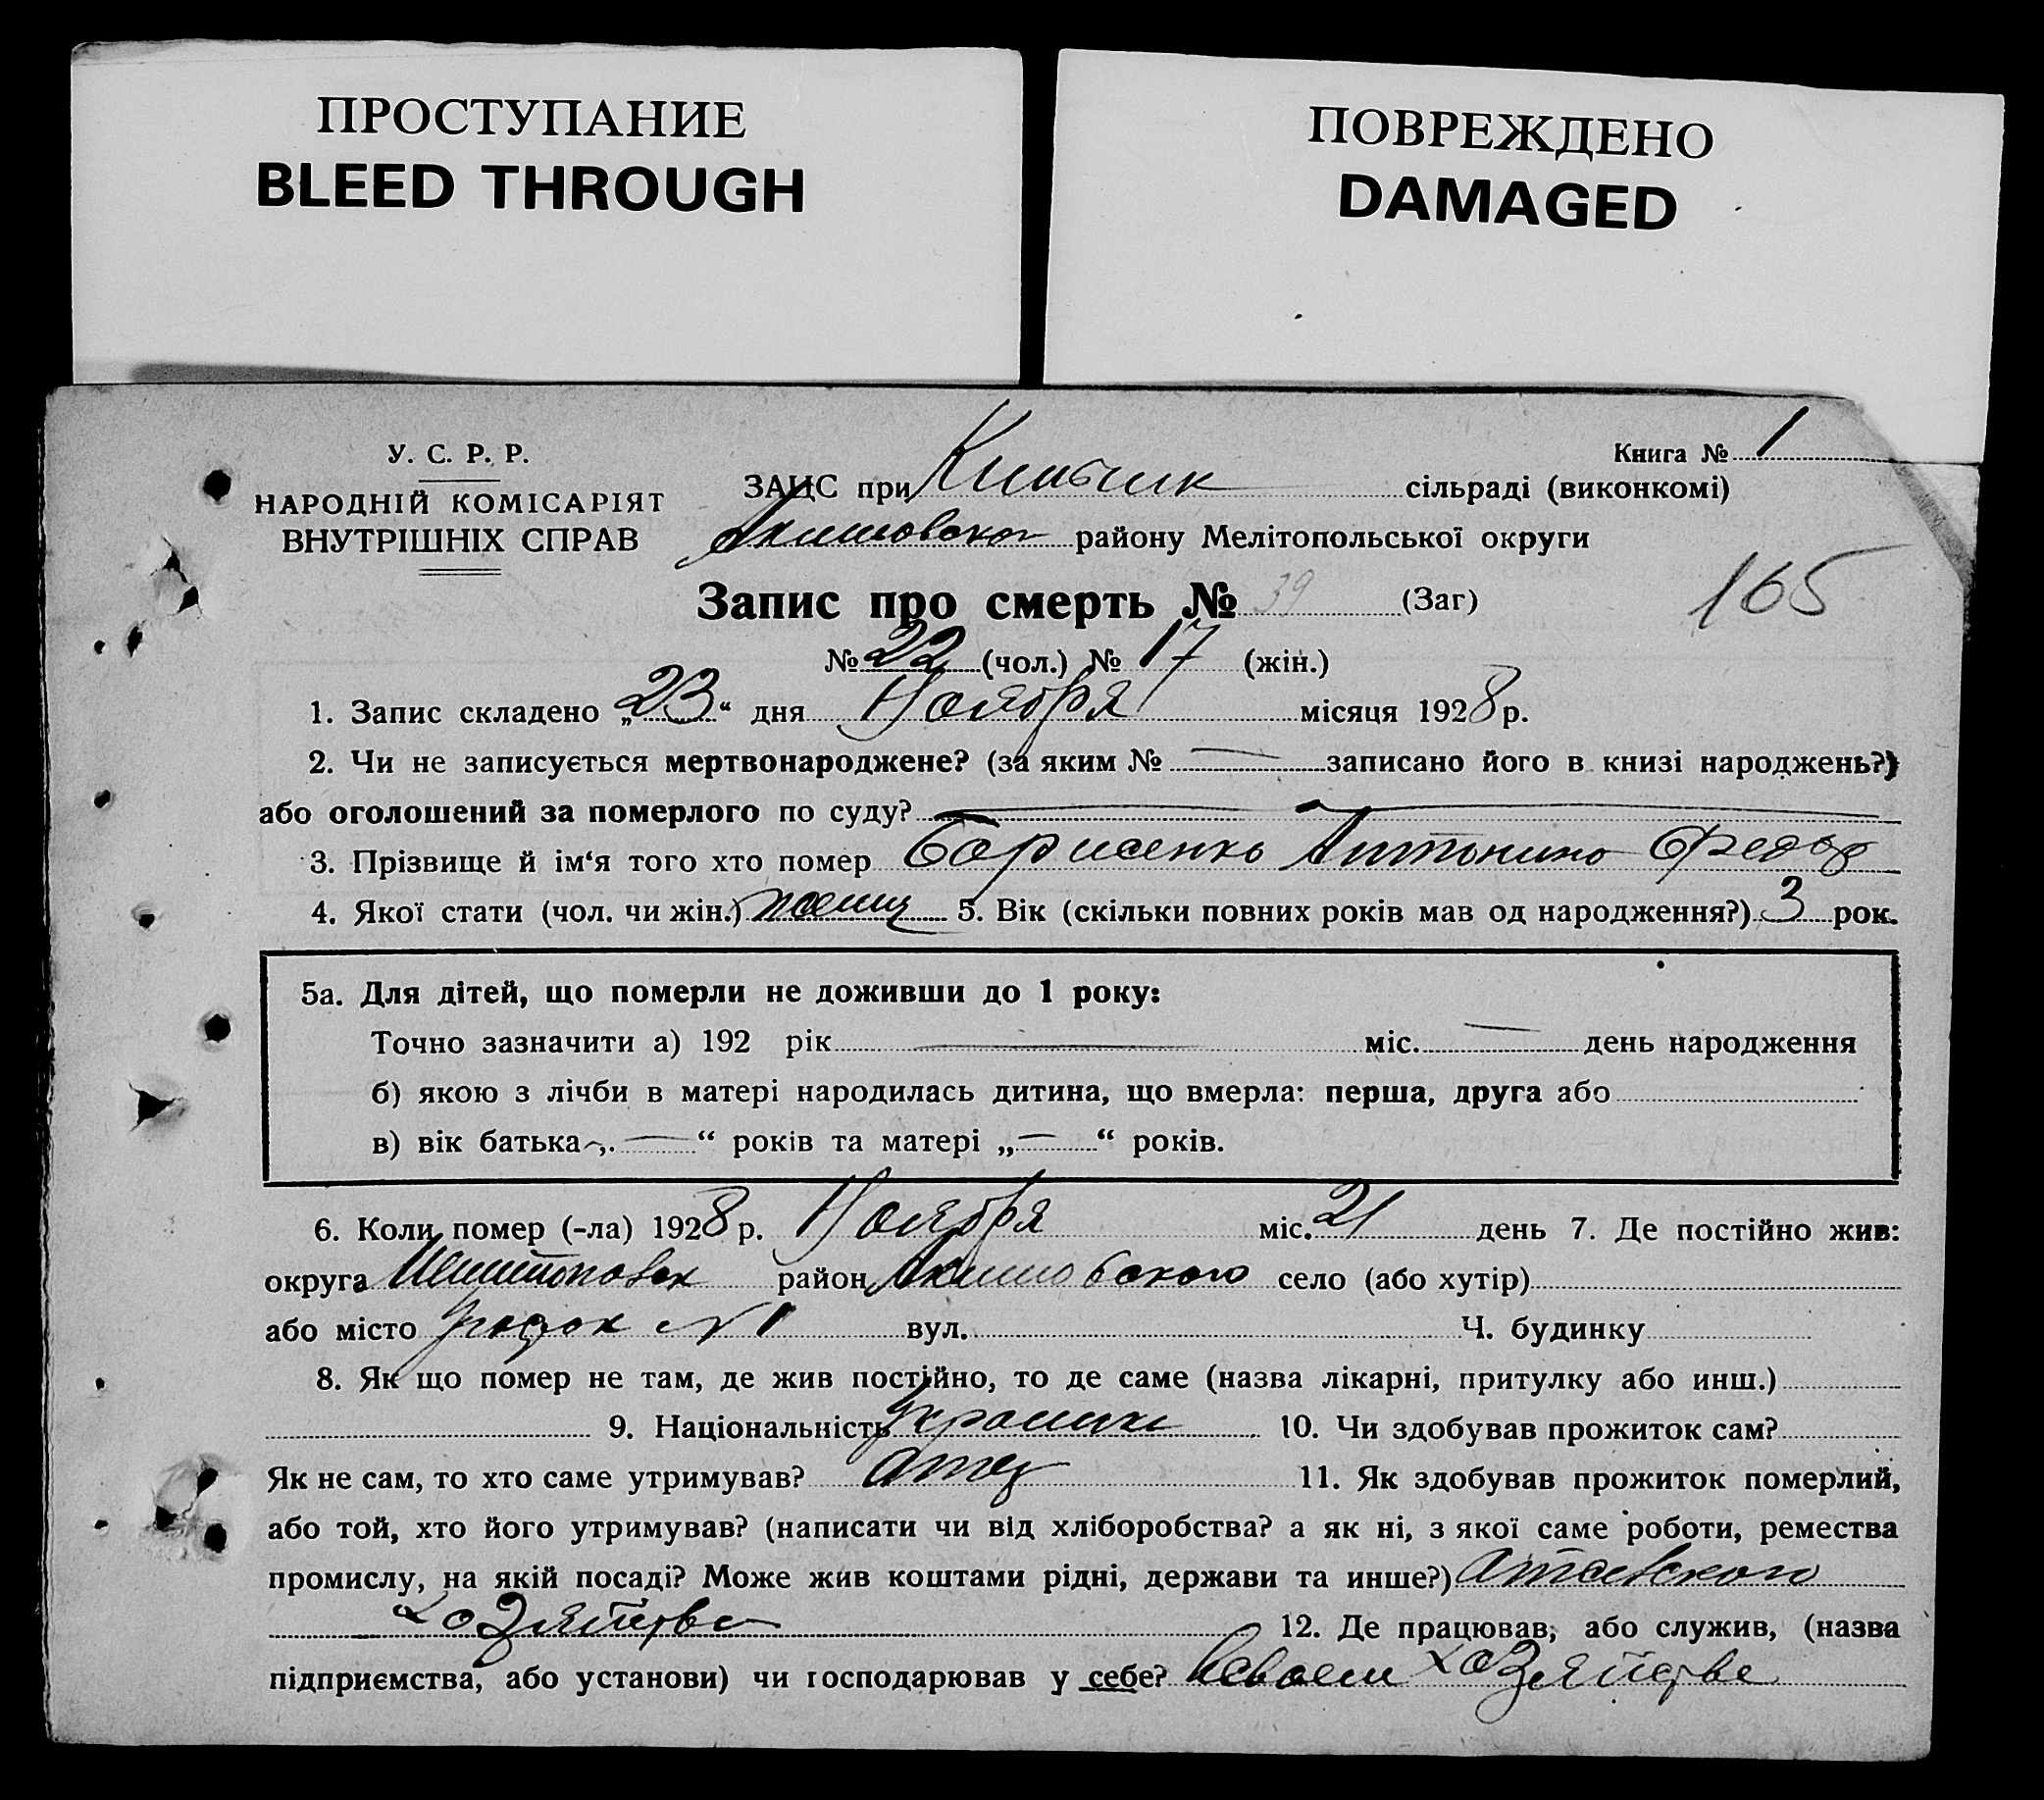 ПРОСТУПАНИЕ
BLEED THROUGH
ПОВРЕЖДЕНО
DAMAGED
Книга № 1
У. С. Р. Р.
НАРОДНІЙ КОМІСАРІЯТ
ВНУТРІШНІХ СПРАВ
ЗАЦС при сільраді (виконкомі)
району Мелітопольської округи
165
Запис про смерть № 39 (Заг)
№ 22 (чол.) № 17 (жін.)
1. Запис складено „23“ дня Ноября місяця 1928 р.
2. Чи не записується мертвонароджене? (за яким № — записано його в книзі народжень?)
або оголошений за померлого по суду? —
3. Прізвище й ім‘я того хто помер Борисенко Антонина
4. Якої стати (чол. чи жін.) 5. Вік (скільки повних років мав од народження?) 3 рок.
5а. Для дітей, що померли не доживши до 1 року:
Точно зазначити а) 192 рік — міс. — день народження
б) якою з лічби в матері народилась дитина, що вмерла: перша, друга або
в) вік батька „ — “ років та матері „ — “ років.
6. Коли помер (-ла) 1928 р. Ноября міс. 21 день 7. Де постійно жив:
округа район Акимовского село (або хутір)
або місто №1 вул. Ч. будинку
8. Як що помер не там, де жив постійно, то де саме (назва лікарні, притулку або инш.)
9. Національність 10. Чи здобував прожиток сам?
Як не сам, то хто саме утримував? отец 11. Як здобував прожиток померлий,
або той, хто його утримував? (написати чи від хліборобства? а як ні, з якої саме роботи, ремества
промислу, на якій посаді? Може жив коштами рідні, держави та инше?)
хозяйства 12. Де працював, або служив, (назва
підприємства, або установи) чи господарював у себе? в своем хозяйстве